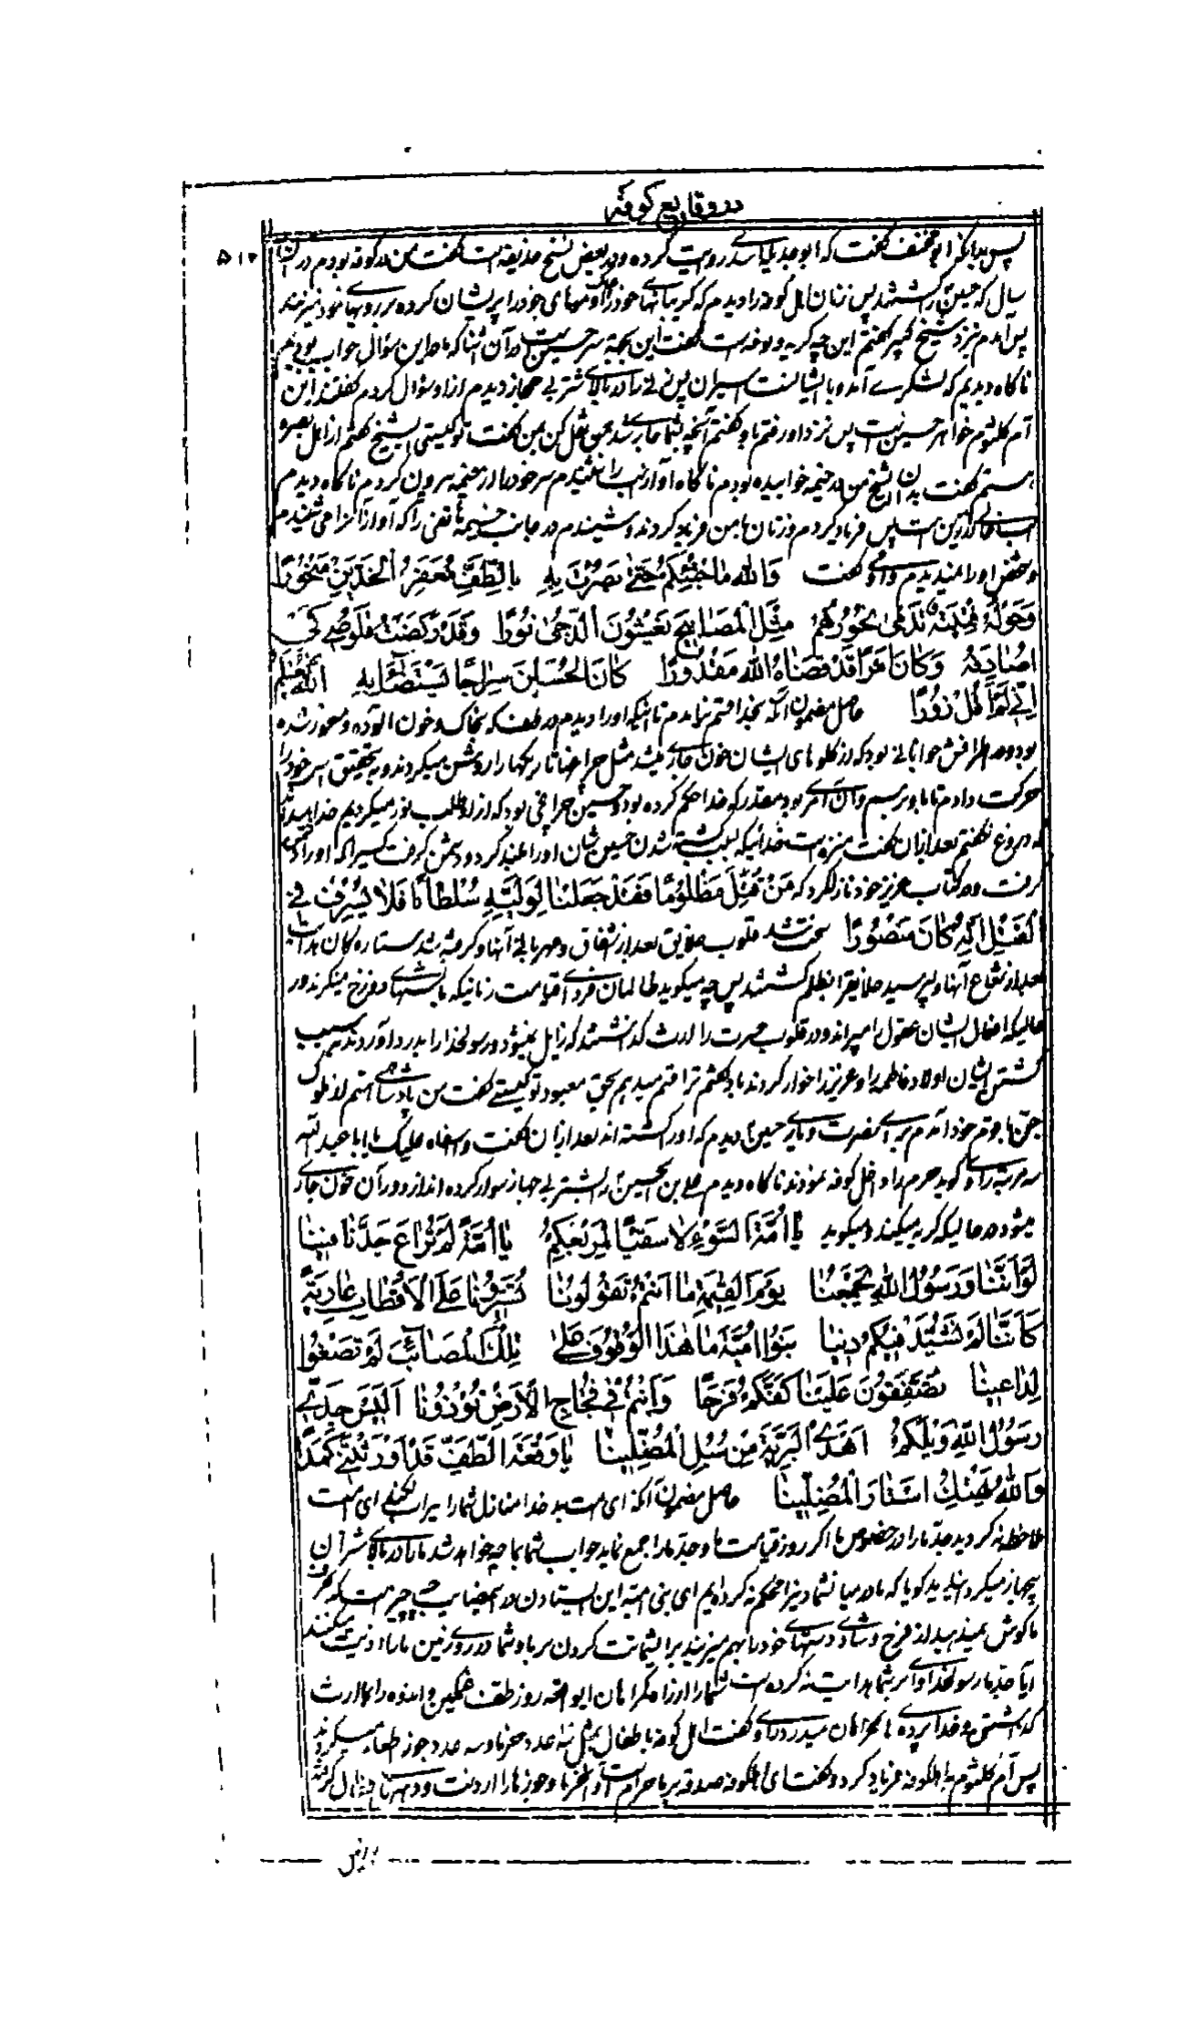 در وقایع کوفه
۵۱۲
پس بدانکه ابو مخنف گفت که ابو جدیله اسدی روایت کرده و در بعض نسخ حذیفه است گفت من در کوفه بودم در آن
سال که حسین را کشتند پس زنان اهل کوفه را دیدم که گریبانها خود را و موهای خود را پریشان کرده بر رویهای خود میزنند
پس آمدم نزد شیخ کبیر گفتم این چه گریه و نوحه است گفت این بجهة سر حسین است در آن اثنا که ما در این سؤال جواب بودیم
ناگاه دیدیم که لشکری آمد و با ایشانست اسیران پس زنی را در بالای شتر بی جهاز دیدم از او سؤال کردم گفتند این
ام کلثوم خواهر حسین است پس نزد او رفتم باو گفتم آنچه بشما جاری شد بمن نقل کن بمن گفت تو کیستی ای شیخ گفتم از اهل بصره
هستم گفت بدان ای شیخ من در خیمه خوابیده بودم ناگاه آواز اسب را شنیدم سر خود را از خیمه بیرون کردم ناگاه دیدم
اسب خالی از زین است پس فریاد کردم و زنان با من فریاد کردند و شنیدم در جانب خیمه هاتفی را که آواز او را می شنیدم
و شخص او را نمیدیدم و او می گفت وَاللّهِ ما جِئْتُكُمْ حَتّى بَصُرْتُ بِهِ بِالطَّفِّ مُعَفَّرَ الْخَدَّيْنِ مَنْحُورًا
وَحَوْلَهُ فِتْيَةٌ تَدْمى نُحُورُهُمُ مِثْلُ الْمَصابيحِ يَغْشَوْنَ الدُّجى نُورًا وَقَدْ رَكَضْتُ قَلُوصى كَىْ
اُصادِفَهُ وَكانَ اَمْرًا قَدْ قَضاهُ اللّهُ مَقْدُورًا كانَ الْحُسَيْنُ سِراجًا يُسْتَضآءُ بِهِ اَللّهُ يَعْلَمُ
اِنّى لَمْ اَقُلْ زُورًا حاصل مضمون آنکه بخدا قسم نیامدم تا اینکه او را دیدم در طف که بخاک و خون آلوده و منحور شده
بود و در اطرافش جوانانی بود که از گلوهای ایشان خون جاری میشد مثل چراغها تاریکها را روشن میکردند و به تحقیق اسب خود را
حرکت دادم تا باو برسم و آن امر بود مقدر که خدا حکم کرده بود و حسین چراغی بود که از او طلب نور میکردیم خدا میداند
که دروغ نگفتم بعد از آن گفت منزه است خدائیکه بسبب کشته شدن حسین شان او را بلند کرد و دشمن گرفت کسیرا که او را دشمن
گرفت و در کتاب عزیز خود نازل کرد که مَنْ قُتِلَ مَظْلُومًا فَقَدْ جَعَلْنا لِوَلِيِّهِ سُلْطانًا فَلا يُسْرِفْ فِى
الْقَتْلِ اِنَّهُ كانَ مَنْصُورًا سخت شد قلوب خلایق بعد از اشفاق و مهربانی آنها و گرفته شد ستاره گان هدایت
بعد از شعاع آنها و پسر سید خلایق را بظلم کشتند پس چه میگوید ظالمان فردای قیامت زمانیکه باتشهای دوزخ میگرند در
حالیکه افعال ایشان عقول را میراند و در قلوب حسرت را ارث گذاشتند که زایل نمیشود و رسولخدا را بدرد آوردند بسبب
کشتن ایشان اولاد فاطمه را و عزیز را خوار کردند باو گفتم ترا قسم میدهم بحق معبود تو کیستی گفت من پادشاهی هستم از ملوک
جن با قوم خود آمدم برای نصرت و یاری حسین دیدم که او را کشته اند بعد از آن گفت وا اسفاه علیک یا ابا عبد الله
سه مرتبه راوی گوید حرم را داخل کوفه نمودند ناگاه دیدم علی بن الحسین را بر شتر بی جهاز سوار کرده اند از دور آن خون جاری
میشود در حالیکه گریه میکند و میگوید يا اُمَّةَ السَّوْءِ لا سُقْيًا لِرَبْعِكُمْ يا اُمَّةً لَمْ تُراعِ جَدَّنا فينا
لَوْ اَنَّنا وَرَسُولَ اللّهِ يَجْمَعُنا يَوْمَ الْقِيمَةِ ما اَنْتُمْ تَقُولُونا تُسَيِّرُونا عَلَى الْاَقْطابِ عارِيَةً
كَاَنَّنا لَمْ نُشَيِّدْ فيكُمُ دينا بَنُو اُمَيَّةَ ما هذَا الْوُقُوفُ عَلى تِلْكَ الْمَصآئِبِ لَمْ تَصْغُوا
لِداعينا تُصَفِّقُونَ عَلَيْنا كَفَّكُمْ فَرَحًا وَاَنْتُمُ فى فِجاجِ الْاَرْضِ تُؤْذُونا اَلَيْسَ جَدّى
رَسُولُ اللّهِ وَيْلَكُمُ اَهْدَى الْبَرِيَّةَ مِنْ سُبُلِ الْمُضِلّينا يا وَقْعَةَ الطَّفِّ قَدْ اَوْرَثْتِنى كَمَدًا
وَاللّهُ يَهْتِكُ اَسْتارَ الْمُضِلّينا حاصل مضمون آنکه ای امت بد خدا منازل شما را سیراب نکند ای امت
ملاحظه نکردید جد ما را در خصوص ما اگر روز قیامت ما و جد ما را جمع نماید جواب شما بما چه خواهد شد ما را در بالای شتران
بیجهاز میگردانید گویا که ما در میان شما دین را محکم نکرده ایم ای بنی امیه این ایستادن در مصایب چه چیز است که
ما گوش نمیدهید از فرح و شادی دستهای خود را بهم میزنید برای شماتت کردن بر ما و شما در روی زمین ما را اذیت میکنند
آیا جد ما رسولخدا وای بر شما هدایت نه کرده است شما را از راه گمراهان ای واقعه روز طف غمگین و اندوه را بما ارث
گذاشتی و خدا پرده ها گمراهان میدرد راوی گفت اهل کوفه باطفال خرما و سه عدد جوز طعام میکردند
پس ام کلثوم با اهلکوفه فریاد کرد و گفت ای اهلکوفه صدقه بر ما حرام است آن خرما و جوزها را از دست و دهن اطفال گرفته